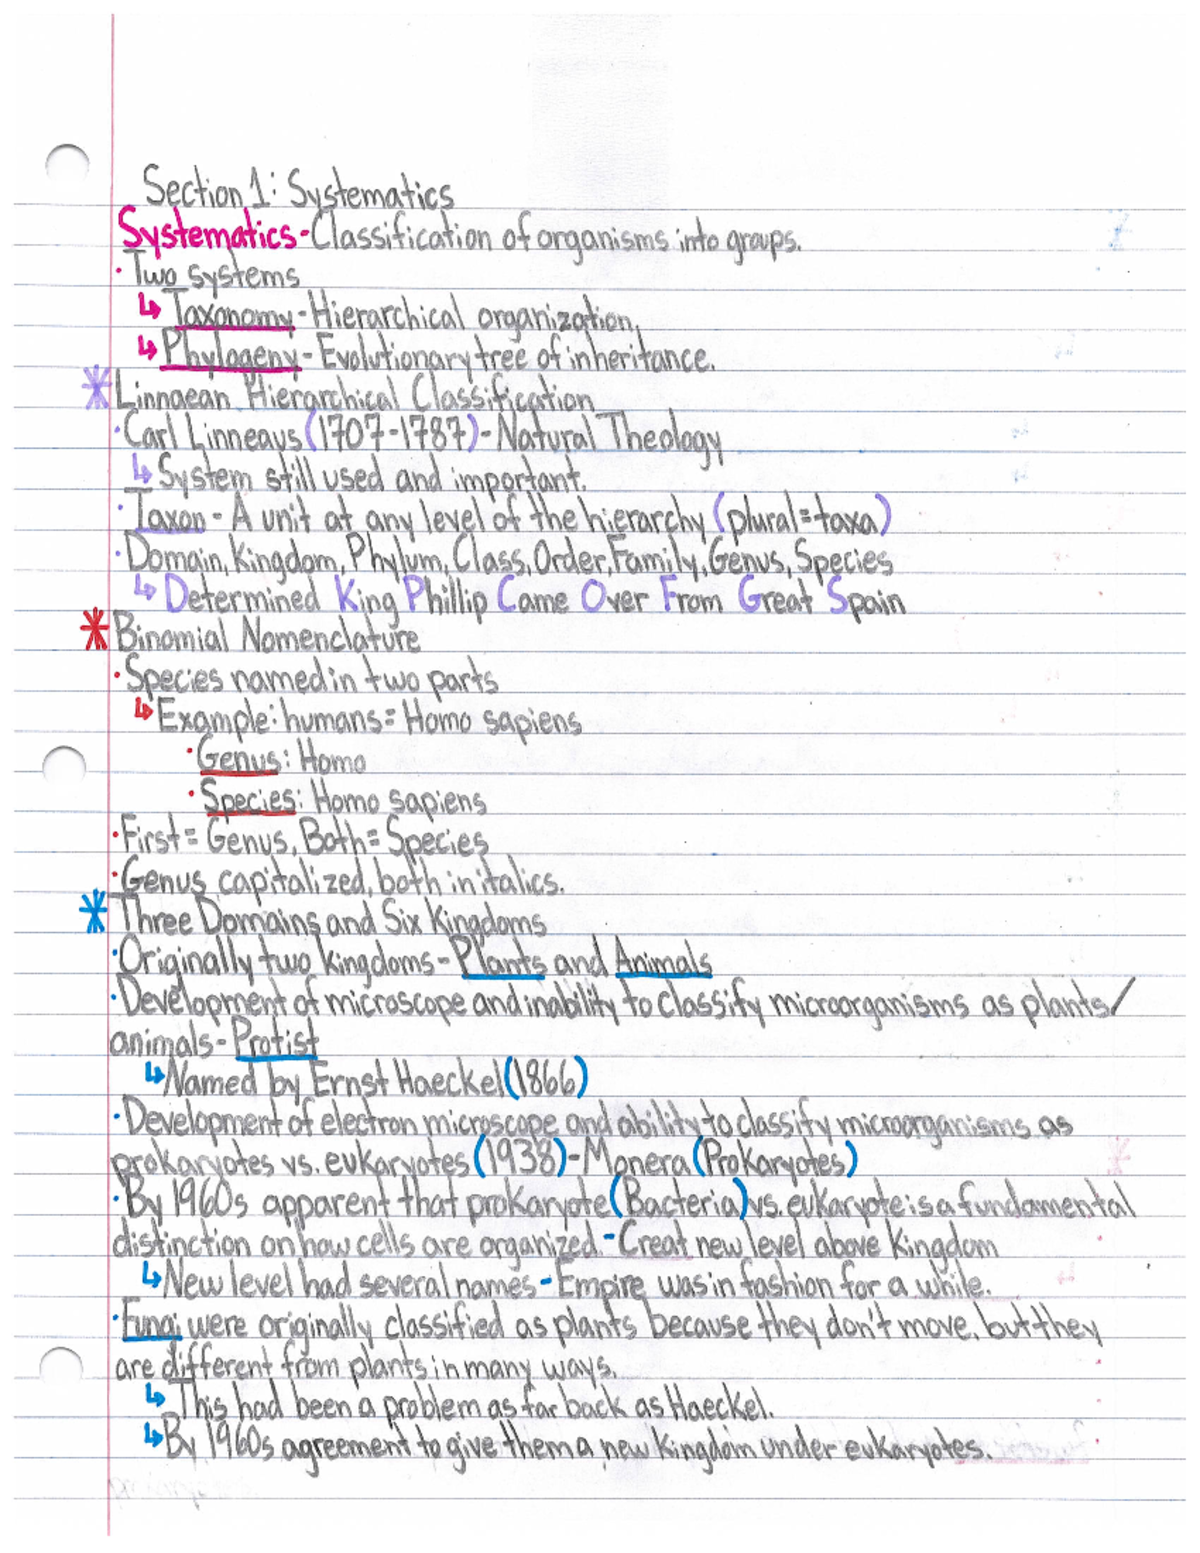 Section 1: Systematics
Systematics-Classification of organisms into groups.
· Two systems
↳ Taxonomy-Hierarchical organization.
↳ Phylogeny-Evolutionary tree of inheritance.
* Linnaean Hierarchical Classification
· Carl Linneaus (1707-1787)-Natural Theology
↳ System still used and important.
· Taxon - A unit at any level of the hierarchy (plural=taxa)
· Domain, Kingdom, Phylum, Class, Order, Family, Genus, Species
↳ Determined King Phillip Came Over From Great Spain
* Binomial Nomenclature
· Species named in two parts
↳ Example: humans= Homo sapiens
· Genus: Homo
· Species: Homo sapiens
· First= Genus, Both= Species
· Genus capitalized, both in italics.
* Three Domains and Six Kingdoms
· Originally two kingdoms-Plants and Animals
· Development of microscope and inability to classify microorganisms as plants/
animals-Protist
↳ Named by Ernst Haeckel (1866)
· Development of electron microscope and ability to classify microorganisms as
prokaryotes vs. eukaryotes (1938)-Monera (Prokaryotes)
· By 1960s apparent that prokaryote (Bacteria) vs. eukaryote is a fundamental
distinction on how cells are organized.-Creat new level above Kingdom
↳ New level had several names-Empire was in fashion for a while.
· Fungi were originally classified as plants because they don't move, but they
are different from plants in many ways.
↳ This had been a problem as far back as Haeckel.
↳ By 1960s agreement to give them a new Kingdom under eukaryotes.